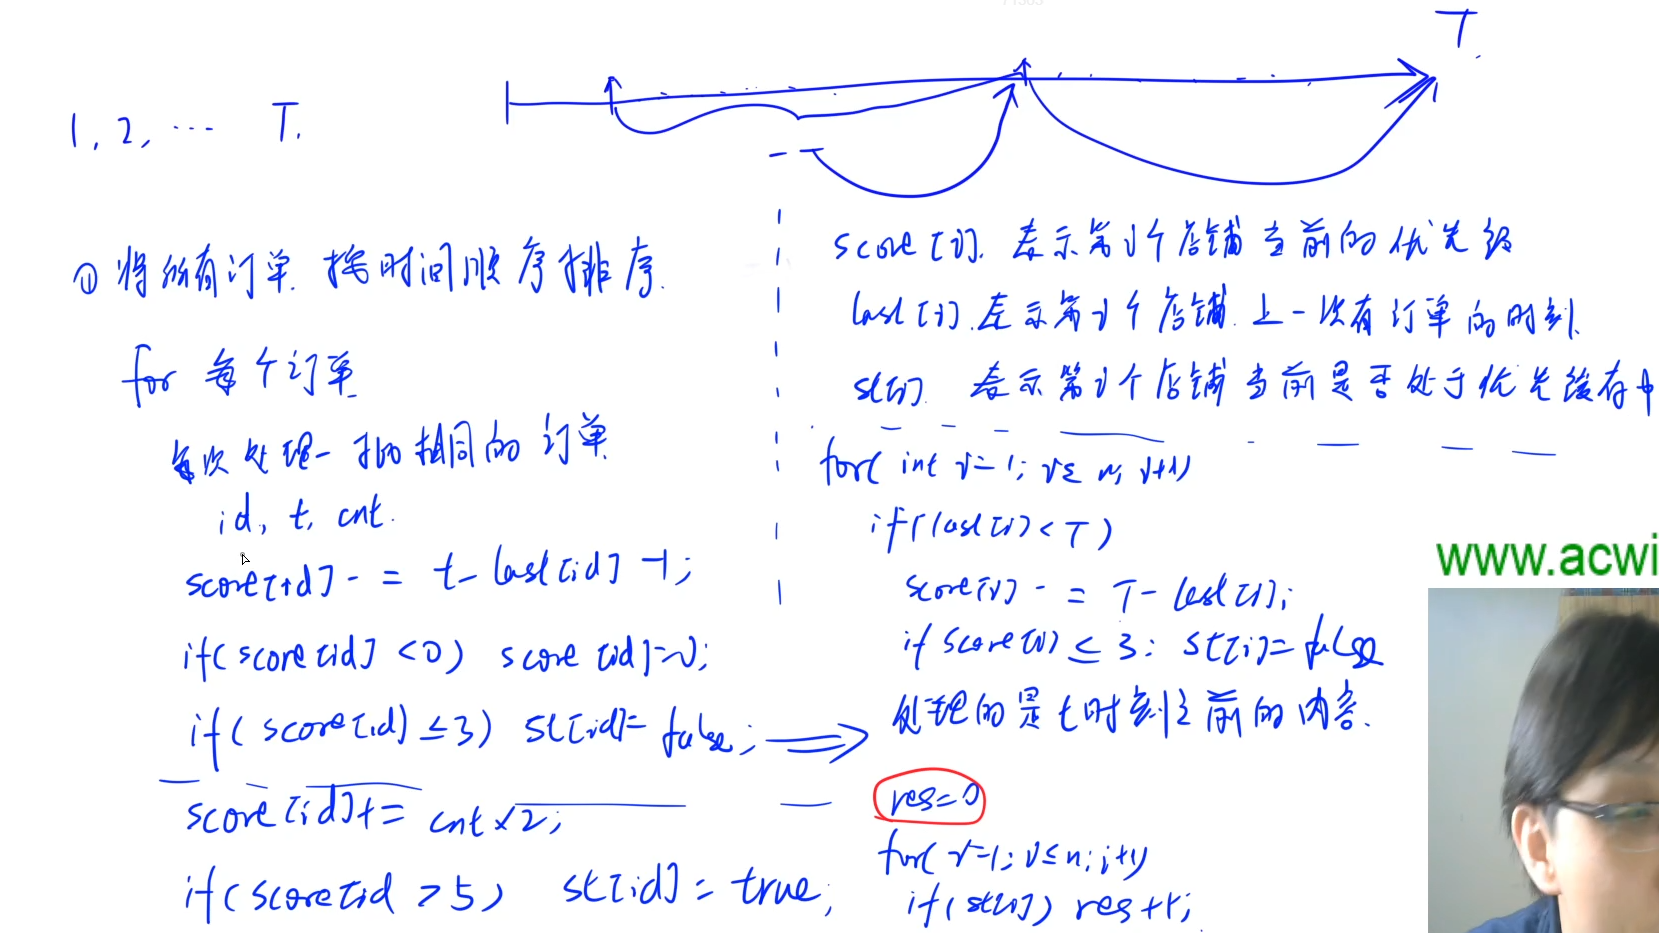 T.
1, 2, ... T.
① 将所有订单 按时间顺序排序.
for 每个订单
每次处理一批相同的订单
id, t, cnt.
score[id] -= t - last[id] -1;
if(score[id] <0) score[id]=0;
if(score[id] ≤3) st[id]= false;
score[id]+= cnt×2;
if(score[id >5) st[id] = true;
score[i]. 表示第i个店铺当前的优先级
last[i]. 表示第i个店铺 上一次有订单的时刻.
st[i]. 表示第i个店铺当前是否处于优先缓存中
for( int i=1; i≤ n; i++)
if(last[i] < T)
score[i] -= T- last[i];
if score[i] ≤ 3: st[i]= false
处理的是t时刻之前的内容.
res=0
for( i=1; i≤n; i++)
if(st[i]) res++;
www.acwi